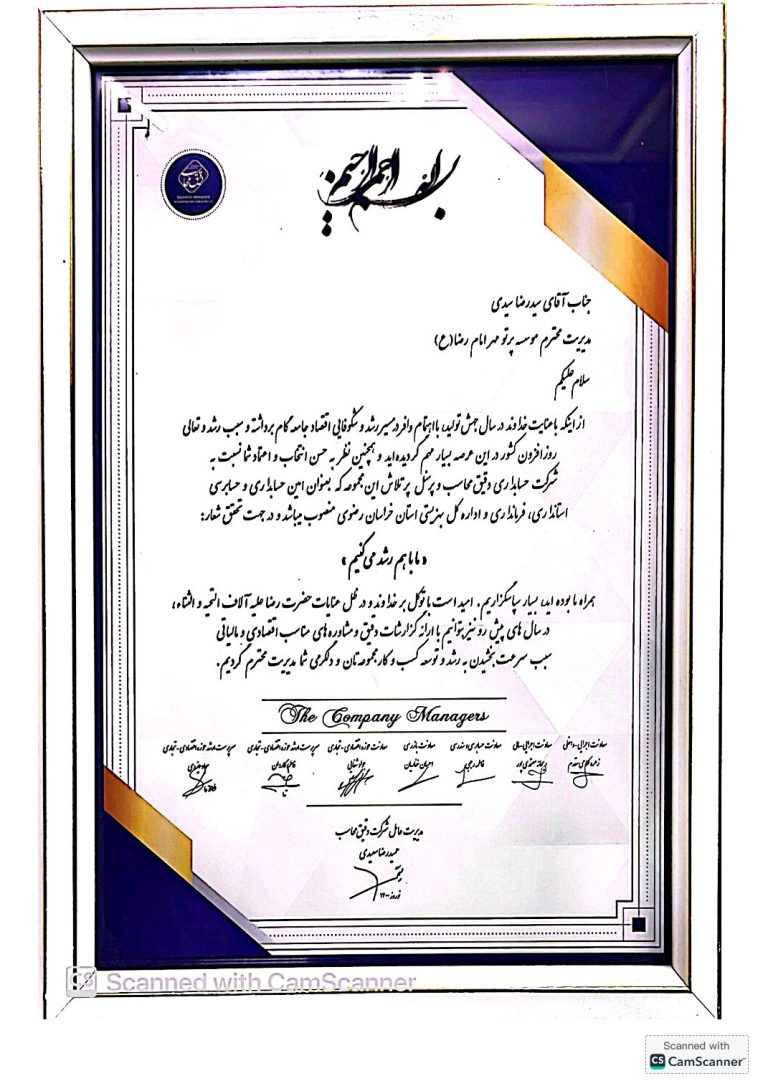 بسم الله الرحمن الرحیم
جناب آقای سیدرضا سیدی
مدیریت محترم موسسه پرتو مهر امام رضا(ع)
سلام علیکم
از اینکه با عنایت خداوند در سال جهش تولید، با اهتمام وافر در مسیر رشد و شکوفایی اقتصاد جامعه گام برداشته و سبب رشد و تعالی
روز افزون کشور در این عرصه بسیار مهم گردیده اید و همچنین نظر به حسن انتخاب و اعتماد شما نسبت به
شرکت حسابداری دقیق محاسب و پرسنل پر تلاش این مجموعه که بعنوان امین حسابداری و حسابرسی
استانداری، فرمانداری و اداره کل بهزیستی استان خراسان رضوی منصوب میباشد و در جهت تحقق شعار:
« ما با هم رشد می کنیم »
همراه ما بوده اید، بسیار سپاسگزاریم. امید است با توکل بر خداوند و در ظل عنایات حضرت رضا علیه آلاف التحیه و الثناء،
در سال های پیش رو نیز بتوانیم با ارائه گزارشات دقیق و مشاوره های مناسب اقتصادی و مالیاتی
سبب سرعت بخشیدن به رشد و توسعه کسب و کار مجموعه تان و دلگرمی شما مدیریت محترم گردیم.
The Company Managers
معاونت اجرایی-داخلی معاونت اجرایی-مالی معاونت حسابداری و سندرسی معاونت بازرسی معاونت حوزه اقتصادی-تجاری سرپرست ارشد حوزه اقتصادی-تجاری سرپرست ارشد حوزه اقتصادی-تجاری
مدیریت عامل شرکت دقیق محاسب
حمیدرضا سعیدی
نوروز ۱۴۰۰
CS Scanned with CamScanner
Scanned with
CS CamScanner